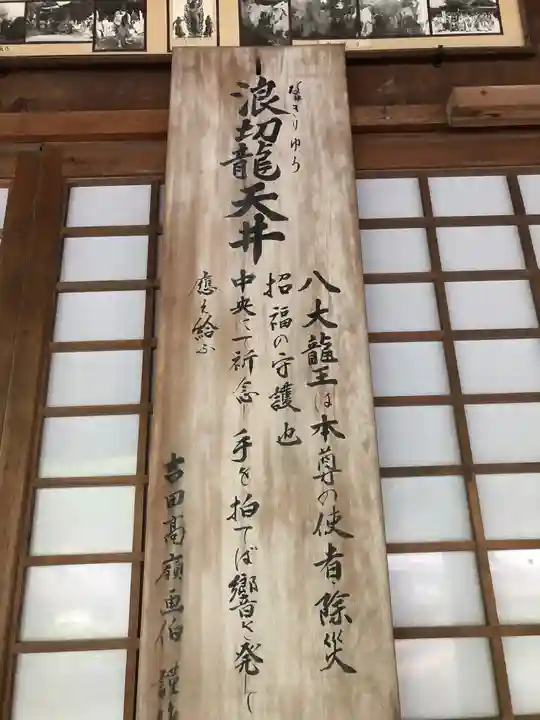 一浪切龍天井
なみきりりゅう
八大龍王は本尊の使者除災
招福の守護也
中央にて祈念し手を拍てば響を発して
應え給ふ
吉田高嶺画伯 謹